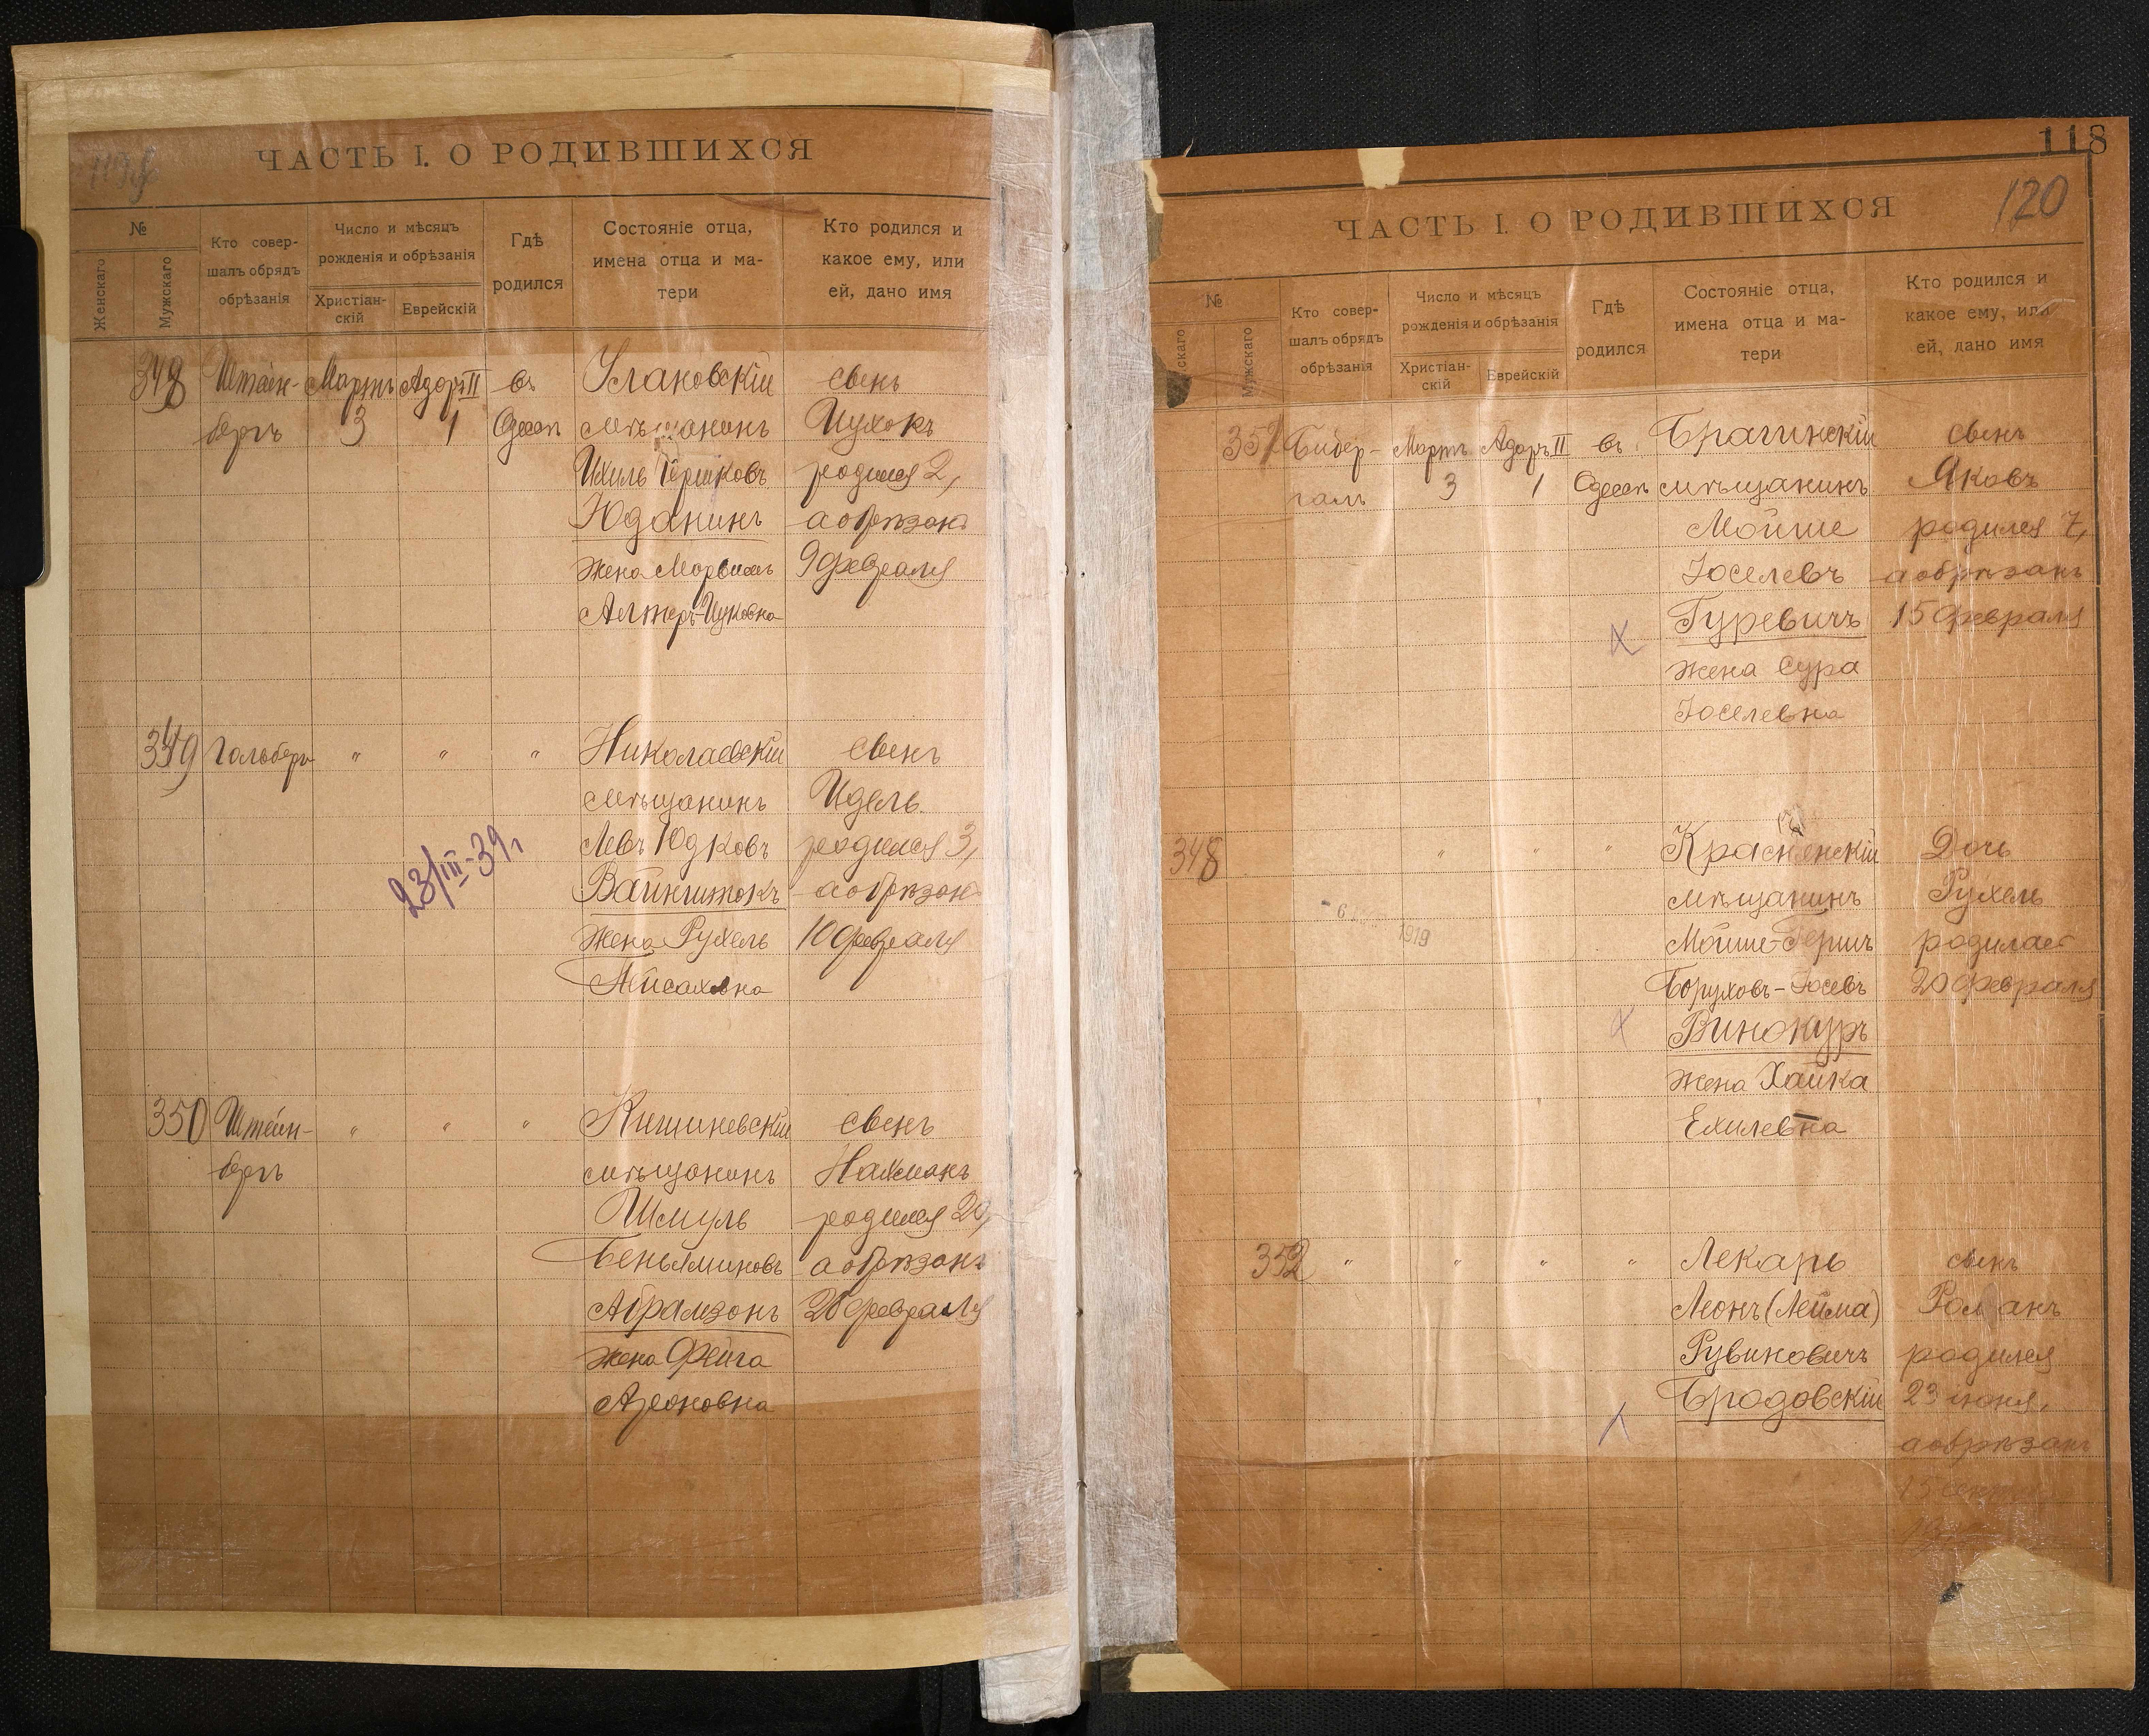 ЧАСТЬ I. О РОДИВШИХСЯ
№
Женскаго
Мужскаго
Кто совер-
шалъ обрядъ
обрѣзанія
Число и мѣсяцъ
рожденія и обрѣзанія
Христіан-
скій
Еврейскій
Гдѣ
родился
Состояніе отца,
имена отца и ма-
тери
Кто родился и
какое ему, или
ей, дано имя
348
Штейн-
бергъ
Мартъ
3
Адоръ II
1
въ
Одессѣ
Улановскій
мѣщанинъ
Ихиль Гершковъ
Юданинъ
жена
Алтеръ-Ицковна
сынъ
Ицхокъ
родился 2,
а обрѣзанъ
9 февраля
349
Гольбергъ
" " "
Николаевскій
мѣщанинъ
Левъ Юдковъ
Вайнштокъ
жена Рухель
Пейсаховна
сынъ
Идель
родился 3,
а обрѣзанъ
10 февраля
23/III-39 г
350
Штейн-
бергъ
" " "
Кишиневскій
мѣщанинъ
Шмуль
Беньяминовъ
Абрамзонъ
жена Фейга
Ароновна
сынъ
Нахманъ
родился 20,
а обрѣзанъ
февраля
118
120
ЧАСТЬ I. О РОДИВШИХСЯ
№
скаго
Мужскаго
Кто совер-
шалъ обрядъ
обрѣзанія
Число и мѣсяцъ
рожденія и обрѣзанія
Христіан-
скій
Еврейскій
Гдѣ
родился
Состояніе отца,
имена отца и ма-
тери
Кто родился и
какое ему, или
ей, дано имя
351
Бибер-
галь
Мартъ
3
Адоръ II
1
въ
Одессѣ
Брагинскій
мѣщанинъ
Мойше
Іоселевъ
Гуревичъ
жена Сура
Іоселевна
сынъ
Яковъ
родился 7,
а обрѣзанъ
15 февраля
348
" " "
Красненскій
мѣщанинъ
Мойше-Гершъ
Боруховъ-Іосевъ
Винокуръ
жена Хайка
Ехилевна
Дочь
Рухель
родилась
20 февраля
6
1919
352
" " " "
Лекарь
Леонъ (Лейма)
Рувиновичъ
Бродовскій
сынъ
Романъ
родился
23 іюня,
а обрѣзанъ